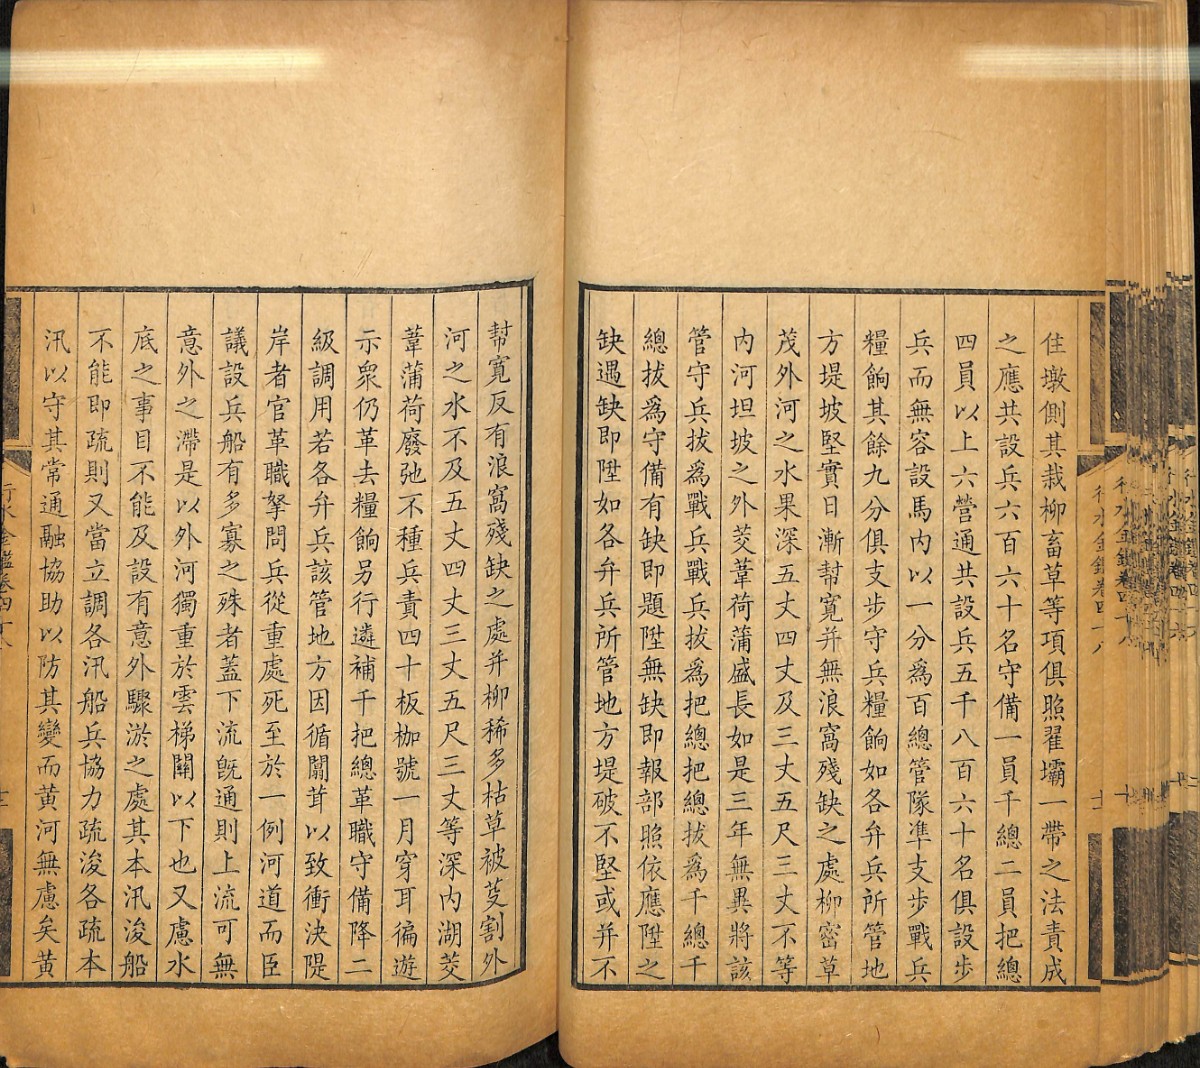 住墩側其栽柳畜草等項俱照翟壩一帶之法責成
之應共設兵六百六十名守備一員千總二員把總
四員以上六營通共設兵五千八百六十名俱設步
兵而無容設馬內以一分為百總管隊準支步戰兵
糧餉其餘九分俱支步守兵糧餉如各弁兵所管地
方堤坡堅實日漸幫寬并無浪窩殘缺之處柳密草
茂外河之水果深五丈四丈及三丈五尺三丈不等
內河坦坡之外茭葦荷蒲盛長如是三年無異將該
管守兵拔為戰兵戰兵拔為把總把總拔為千總千
總拔為守備有缺即題陞無缺即報部照依應陞之
缺遇缺即陞如各弁兵所管地方堤破不堅或并不
幫寬反有浪窩殘缺之處并柳稀多枯草被芟割外
河之水不及五丈四丈三丈五尺三丈等深內湖茭
葦蒲荷廢弛不種兵責四十板枷號一月穿耳徧遊
示衆仍革去糧餉另行遴補千把總革職守備降二
級調用若各弁兵該管地方因循闒茸以致衝決隄
岸者官革職拏問兵從重處死至於一例河道而臣
議設兵船有多寡之殊者蓋下流旣通則上流可無
意外之滯是以外河獨重於雲梯關以下也又慮水
底之事目不能及設有意外驟淤之處其本汛浚船
不能即疏則又當立調各汛船兵協力疏浚各疏本
汛以守其常通融協助以防其變而黃河無慮矣黃
行水金鑑卷四十八